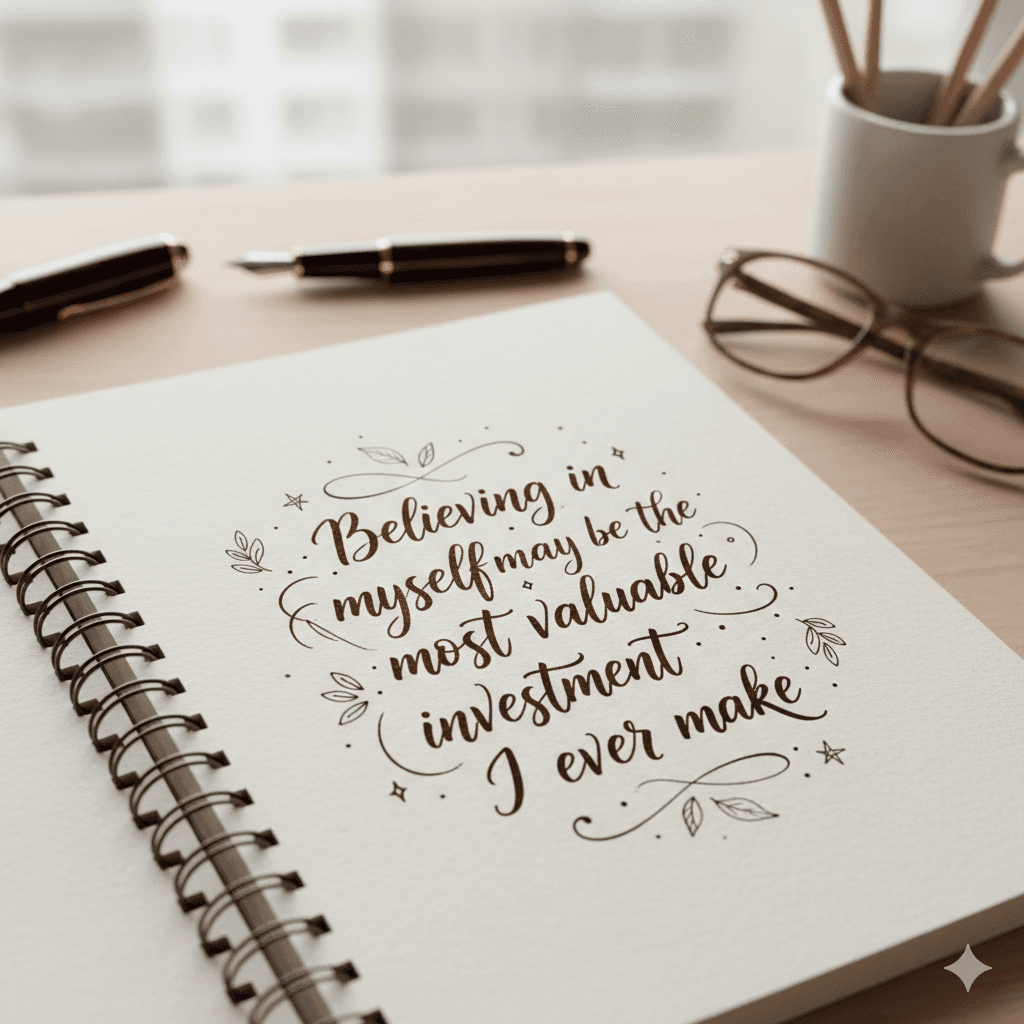 Believing in
myself may be the
most valuable
investment
I ever make